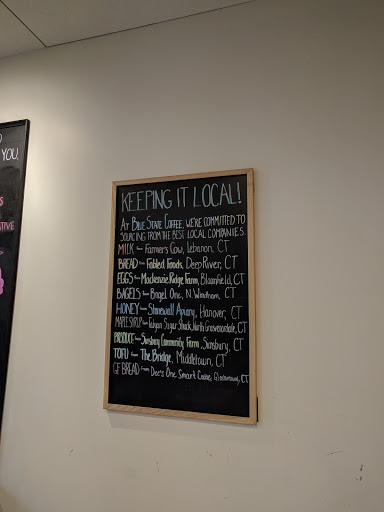 YOU.
KEEPING IT LOCAL!
AT BLUE STATE COFFEE, WE'RE COMMITTED TO
SOURCING FROM THE BEST LOCAL COMPANIES.
MILK from Farmers Cow, Lebanon, CT
BREAD from Fabled Foods, Deep River, CT
EGGS from Mackenzie Ridge Farm, Bloomfield, CT
BAGELS from Bagel One, N. Windham, CT
HONEY from Stonewall Apiary, Hanover, CT
MAPLE SYRUP from Sugar Shack, North Grosvenordale, CT
PRODUCE from Simsbury Community Farm, Simsbury, CT
TOFU from The Bridge, Middletown, CT
GF BREAD from Dee's One Smart Cookie, Glastonbury, CT